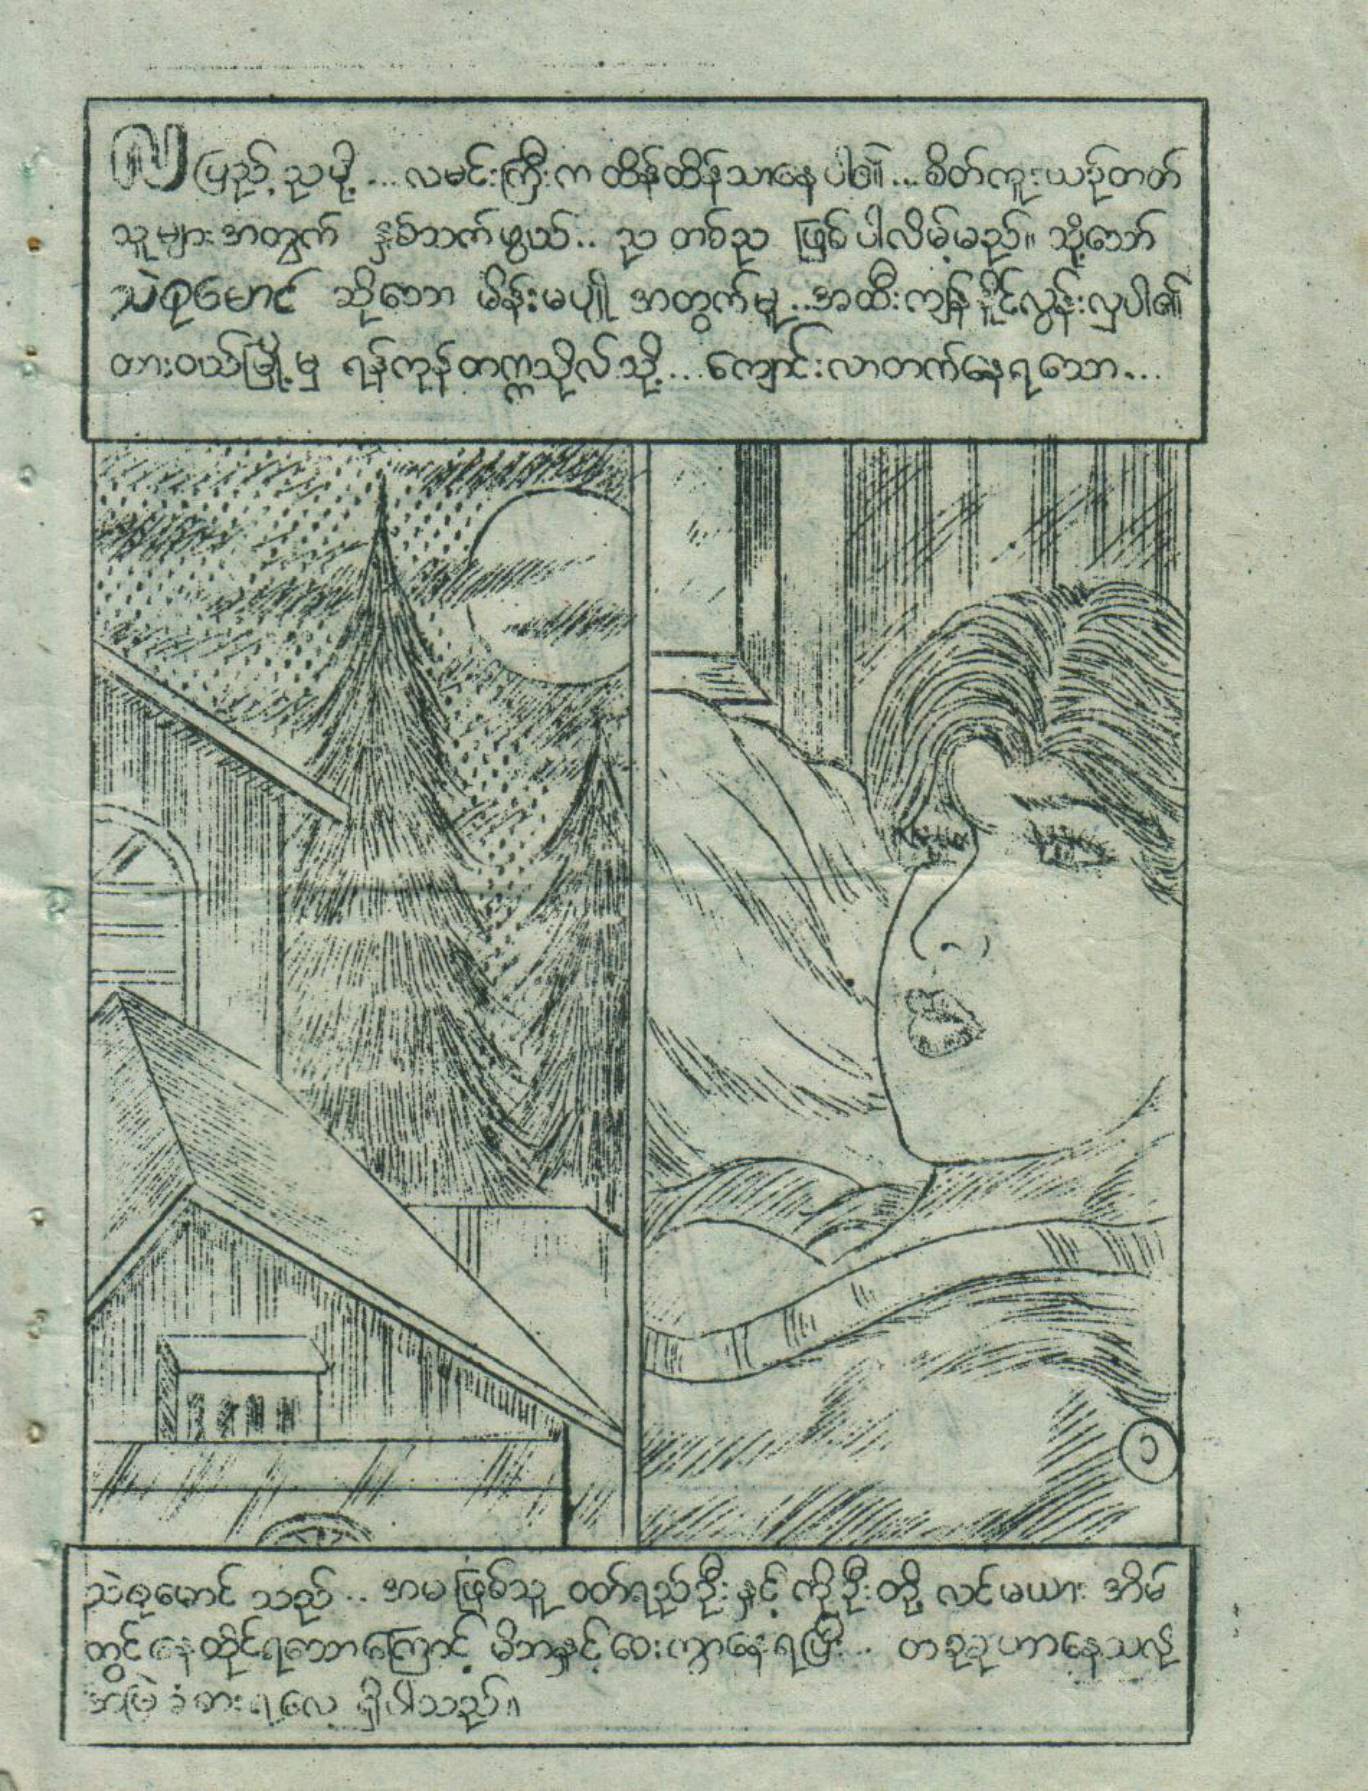 လပြည့်ညမို့...လမင်းကြီးကထိန်ထိန်သာနေပါ၏...စိတ်ကူးယဉ်တတ်
သူများအတွက် နှစ်သက်ဖွယ်.. ညတစ်ည ဖြစ်ပါလိမ့်မည်။ သို့သော်
သဲစုမောင် ဆိုသော မိန်းမပျို အတွက်မူ..အထီးကျန်နိုင်လွန်းလှပါ၏
ထားဝယ်မြို့မှ ရန်ကုန်တက္ကသိုလ်သို့...ကျောင်းလာတက်နေရသော...
၁
သဲစုမောင်သည်.. အမဖြစ်သူ ဝတ်ရည်ဦးနှင့် ကိုဦးတို့ လင်မယား အိမ်
တွင်နေထိုင်ရသောကြောင့် မိဘနှင့်ဝေးကွာနေရပြီး.. တခုခုဟာနေသလို
အမြဲခံစားရလေ ရှိပါသည်။